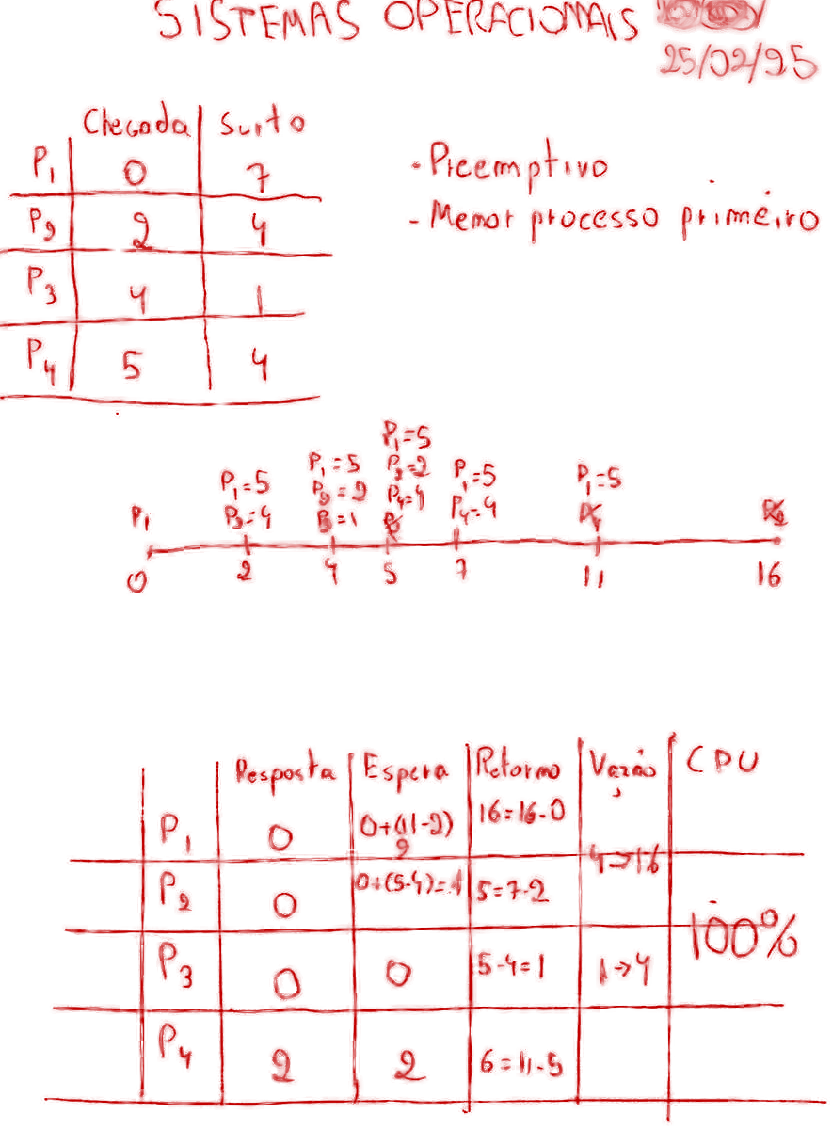 SISTEMAS OPERACIONAIS
25/02/25
Chegada Surto
P1 0 7
P2 2 4
P3 4 1
P4 5 4
- Preemptivo
- Menor processo primeiro
P1=5
P1=5 P1=5 P2=2 P1=5 P1=5
P1 P2=4 P2=2 P3=1 P4=4 P4=4
0 2 4 5 7 11 16
Resposta Espera Retorno Vazão CPU
P1 0 0+(11-2) 9 16=16-0
4→16
P2 0 0+(5-4)=1 5=7-2
100%
P3 0 0 5-4=1 1→4
P4 2 2 6=11-5